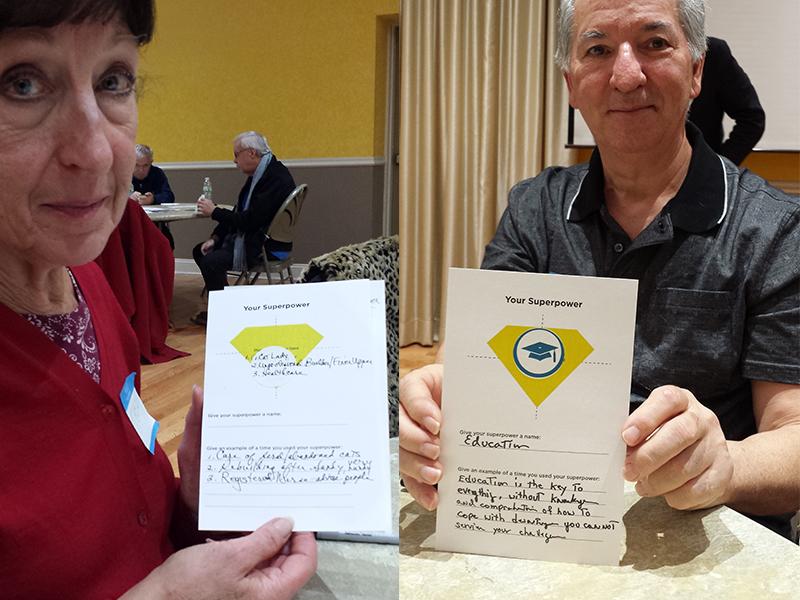 Your Superpower
1. Cat Lady
3. Healthcare
Give your superpower a name:
Give an example of a time you used your superpower:
1. Care of feral/abandoned cats
2. Rebuilding after Sandy, very handy
3. Registered Nurse people
Your Superpower
Give your superpower a name:
Education
Give an example of a time you used your superpower:
Education is the key to
everything, without knowledge
and comprehension of how to
cope with you cannot
survive your challenge